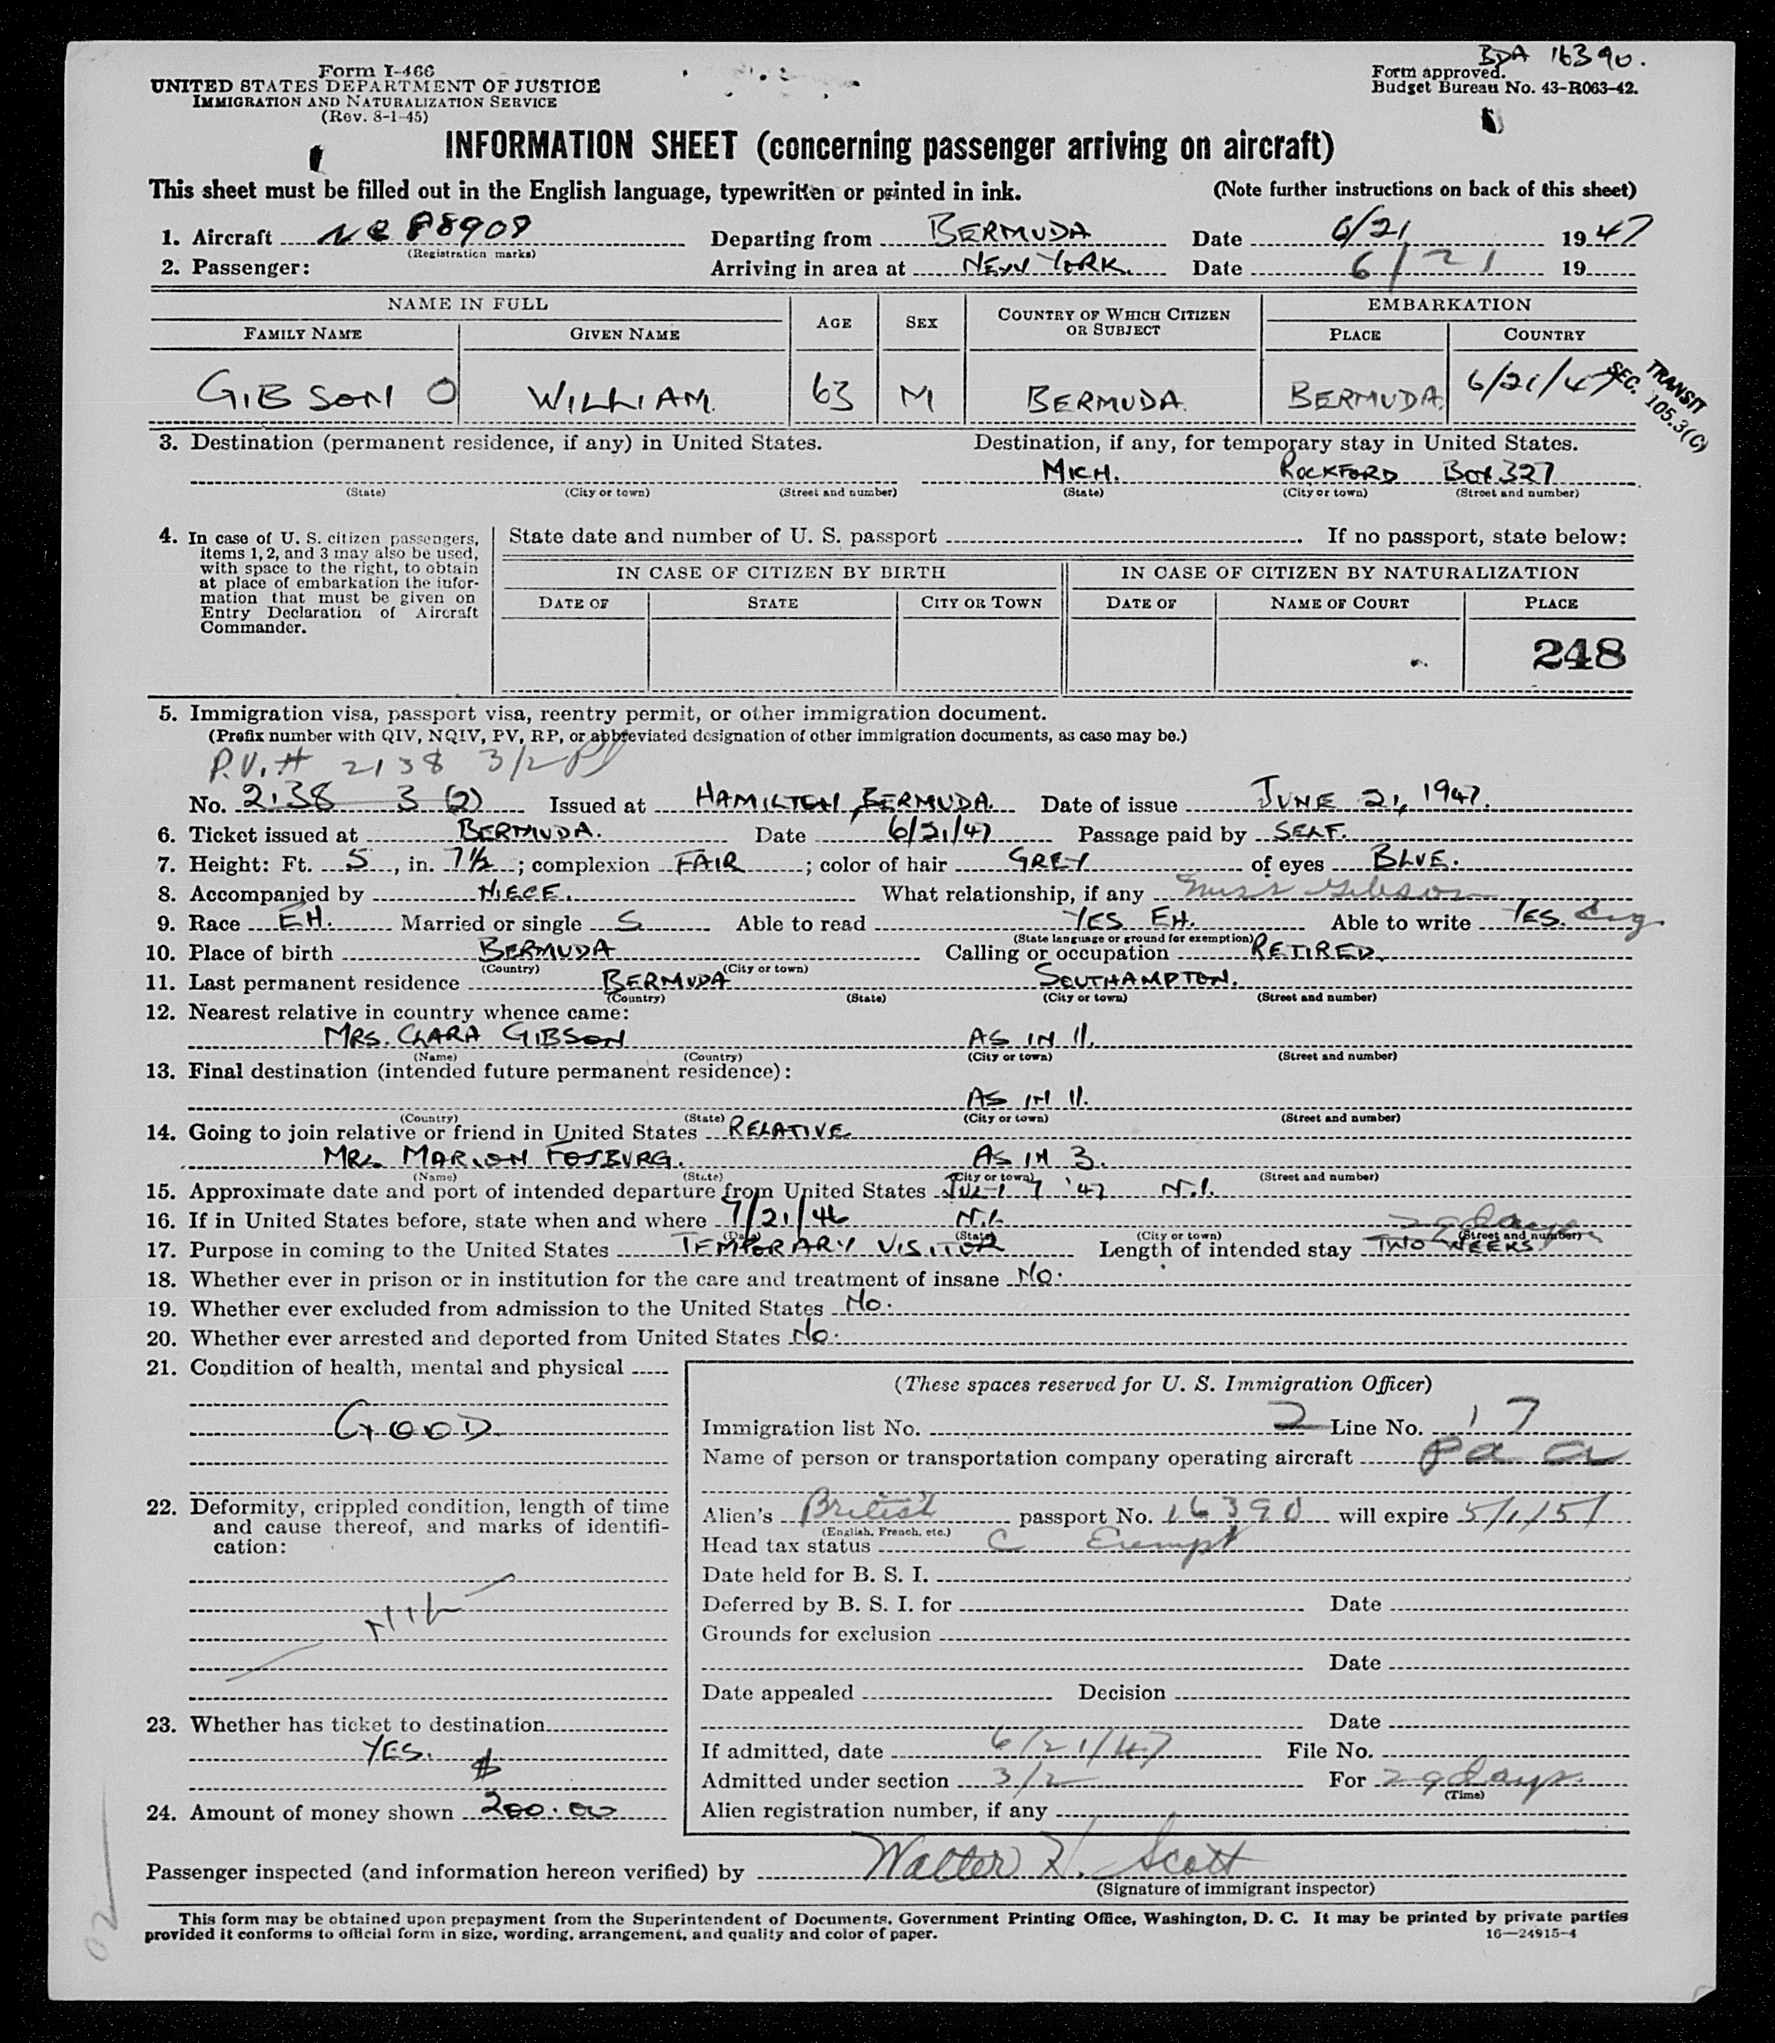 BDA 16390.
Form I-466
UNITED STATES DEPARTMENT OF JUSTICE
IMMIGRATION AND NATURALIZATION SERVICE
(Rev. 8-1-45)
Form approved.
Budget Bureau No. 43-R063-42.
INFORMATION SHEET (concerning passenger arriving on aircraft)
This sheet must be filled out in the English language, typewritten or printed in ink. (Note further instructions on back of this sheet)
1. Aircraft NC 88909 Departing from BERMUDA Date 6/21 1947
(Registration marks)
2. Passenger: Arriving in area at NEW YORK. Date 6/21 19
NAME IN FULL AGE SEX COUNTRY OF WHICH CITIZEN OR SUBJECT EMBARKATION
FAMILY NAME GIVEN NAME PLACE COUNTRY
GIBSON O WILLIAM. 63 M BERMUDA. BERMUDA. 6/21/47
TRANSIT
SEC. 105.3(C)
3. Destination (permanent residence, if any) in United States. Destination, if any, for temporary stay in United States.
MICH. ROCKFORD BOX 327
(State) (City or town) (Street and number) (State) (City or town) (Street and number)
4. In case of U. S. citizen passengers, items 1, 2, and 3 may also be used, with space to the right, to obtain at place of embarkation the information that must be given on Entry Declaration of Aircraft Commander.
State date and number of U. S. passport . If no passport, state below:
IN CASE OF CITIZEN BY BIRTH IN CASE OF CITIZEN BY NATURALIZATION
DATE OF STATE CITY OR TOWN DATE OF NAME OF COURT PLACE
248
5. Immigration visa, passport visa, reentry permit, or other immigration document.
(Prefix number with QIV, NQIV, PV, RP, or abbreviated designation of other immigration documents, as case may be.)
P.V. # 2138 3/2
No. 2138 3 (2) Issued at HAMILTON, BERMUDA. Date of issue JUNE 21, 1947.
6. Ticket issued at BERMUDA. Date 6/21/47 Passage paid by SELF.
7. Height: Ft. 5, in. 7½; complexion FAIR; color of hair GREY of eyes BLUE.
8. Accompanied by NIECE. What relationship, if any Miss Gibson
9. Race EH. Married or single S Able to read YES EH. Able to write YES. Eng
(State language or ground for exemption)
10. Place of birth BERMUDA Calling or occupation RETIRED.
(Country) (City or town)
11. Last permanent residence BERMUDA SOUTHAMPTON.
(Country) (State) (City or town) (Street and number)
12. Nearest relative in country whence came:
MRS. CLARA GIBSON AS IN 11.
(Name) (Country) (City or town) (Street and number)
13. Final destination (intended future permanent residence):
AS IN 11.
(Country) (State) (City or town) (Street and number)
14. Going to join relative or friend in United States RELATIVE
MRS. MARION FOSBURG. AS IN 3.
(Name) (State) (City or town) (Street and number)
15. Approximate date and port of intended departure from United States JULY 7 '47 N.Y.
16. If in United States before, state when and where 7/21/46 N.Y. 29 days
(Date) (State) (City or town) (Street and number)
17. Purpose in coming to the United States TEMPORARY VISITOR Length of intended stay TWO WEEKS.
18. Whether ever in prison or in institution for the care and treatment of insane NO.
19. Whether ever excluded from admission to the United States NO.
20. Whether ever arrested and deported from United States NO.
21. Condition of health, mental and physical
GOOD
22. Deformity, crippled condition, length of time
and cause thereof, and marks of identifi-
cation:
NIL
23. Whether has ticket to destination
YES.
$
24. Amount of money shown 200.00
(These spaces reserved for U. S. Immigration Officer)
Immigration list No. 2 Line No. 17
Name of person or transportation company operating aircraft P a a
Alien's British passport No. 16390 will expire 5/1/51
(English, French, etc.)
Head tax status C Exempt
Date held for B. S. I.
Deferred by B. S. I. for Date
Grounds for exclusion
Date
Date appealed Decision
Date
If admitted, date 6/21/47 File No.
Admitted under section 3/2 For 29 days.
(Time)
Alien registration number, if any
Passenger inspected (and information hereon verified) by Walter H. Scott
(Signature of immigrant inspector)
This form may be obtained upon prepayment from the Superintendent of Documents, Government Printing Office, Washington, D. C. It may be printed by private parties
provided it conforms to official form in size, wording, arrangement, and quality and color of paper. 16—24915-4
02